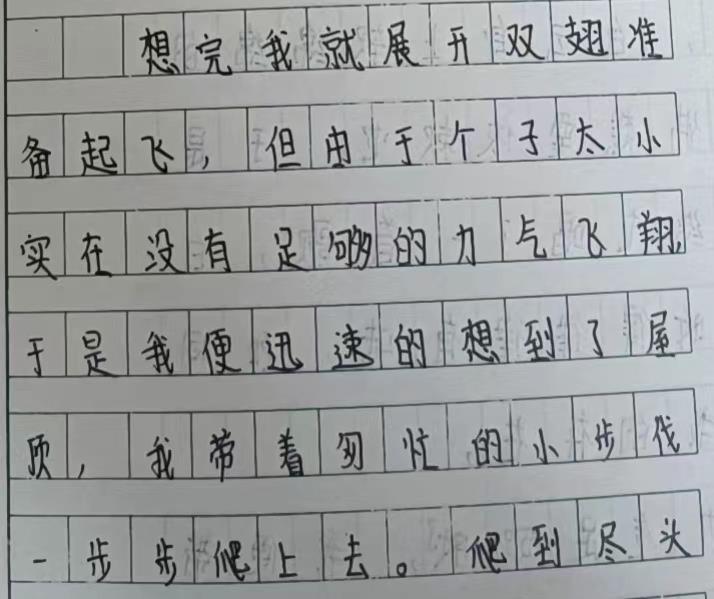 想完我就展开双翅准
备起飞，但由于个子太小
实在没有足够的力气飞翔，
于是我便迅速的想到了屋
顶，我带着匆忙的小步伐
一步步爬上去。爬到尽头